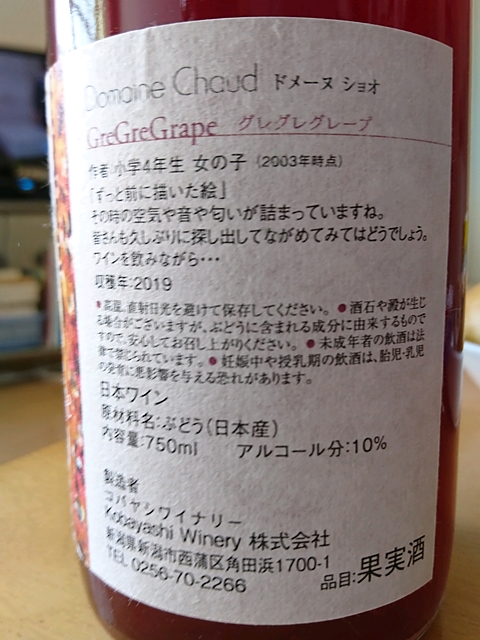 Domaine Chaud ドメーヌ ショオ
GreGreGrape グレグレグレープ
作者:小学4年生 女の子 (2003年時点)
「ずっと前に描いた絵」
その時の空気や音や匂いが詰まっていますね。
皆さんも久しぶりに探し出してながめてみてはどうでしょう。
ワインを飲みながら・・・
収穫年:2019
●高温、直射日光を避けて保存してください。 ●酒石や澱が生じ
る場合がございますが、ぶどうに含まれる成分に由来するもので
すので、安心してお召し上がりください。 ●未成年者の飲酒は法
律で禁じられています。 ●妊娠中や授乳期の飲酒は、胎児・乳児
の発育に悪影響を与える恐れがあります。
日本ワイン
原材料名:ぶどう(日本産)
内容量:750ml アルコール分:10%
製造者
コバヤシワイナリー
Kobayashi Winery 株式会社
新潟県新潟市西蒲区角田浜1700-1
TEL 0256-70-2266
品目:果実酒